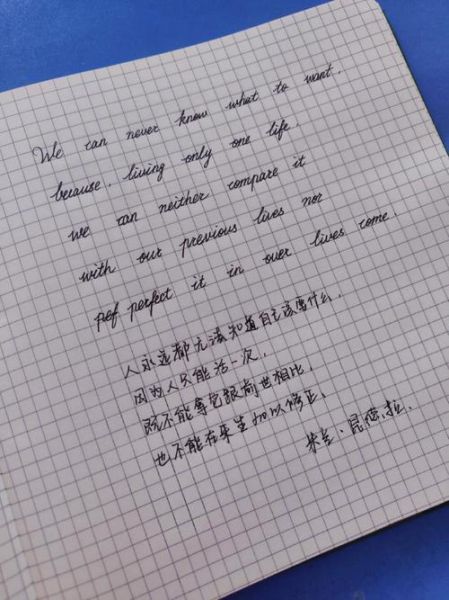 We can never know what to want.
because, living only one life.
we can neither compare it
with our previous lives nor
pef perfect it in over lives come.
人永远都无法知道自己该要什么.
因为人只能活一次.
既不能拿它跟前世相比.
也不能在来生加以修正.
米兰·昆德拉.